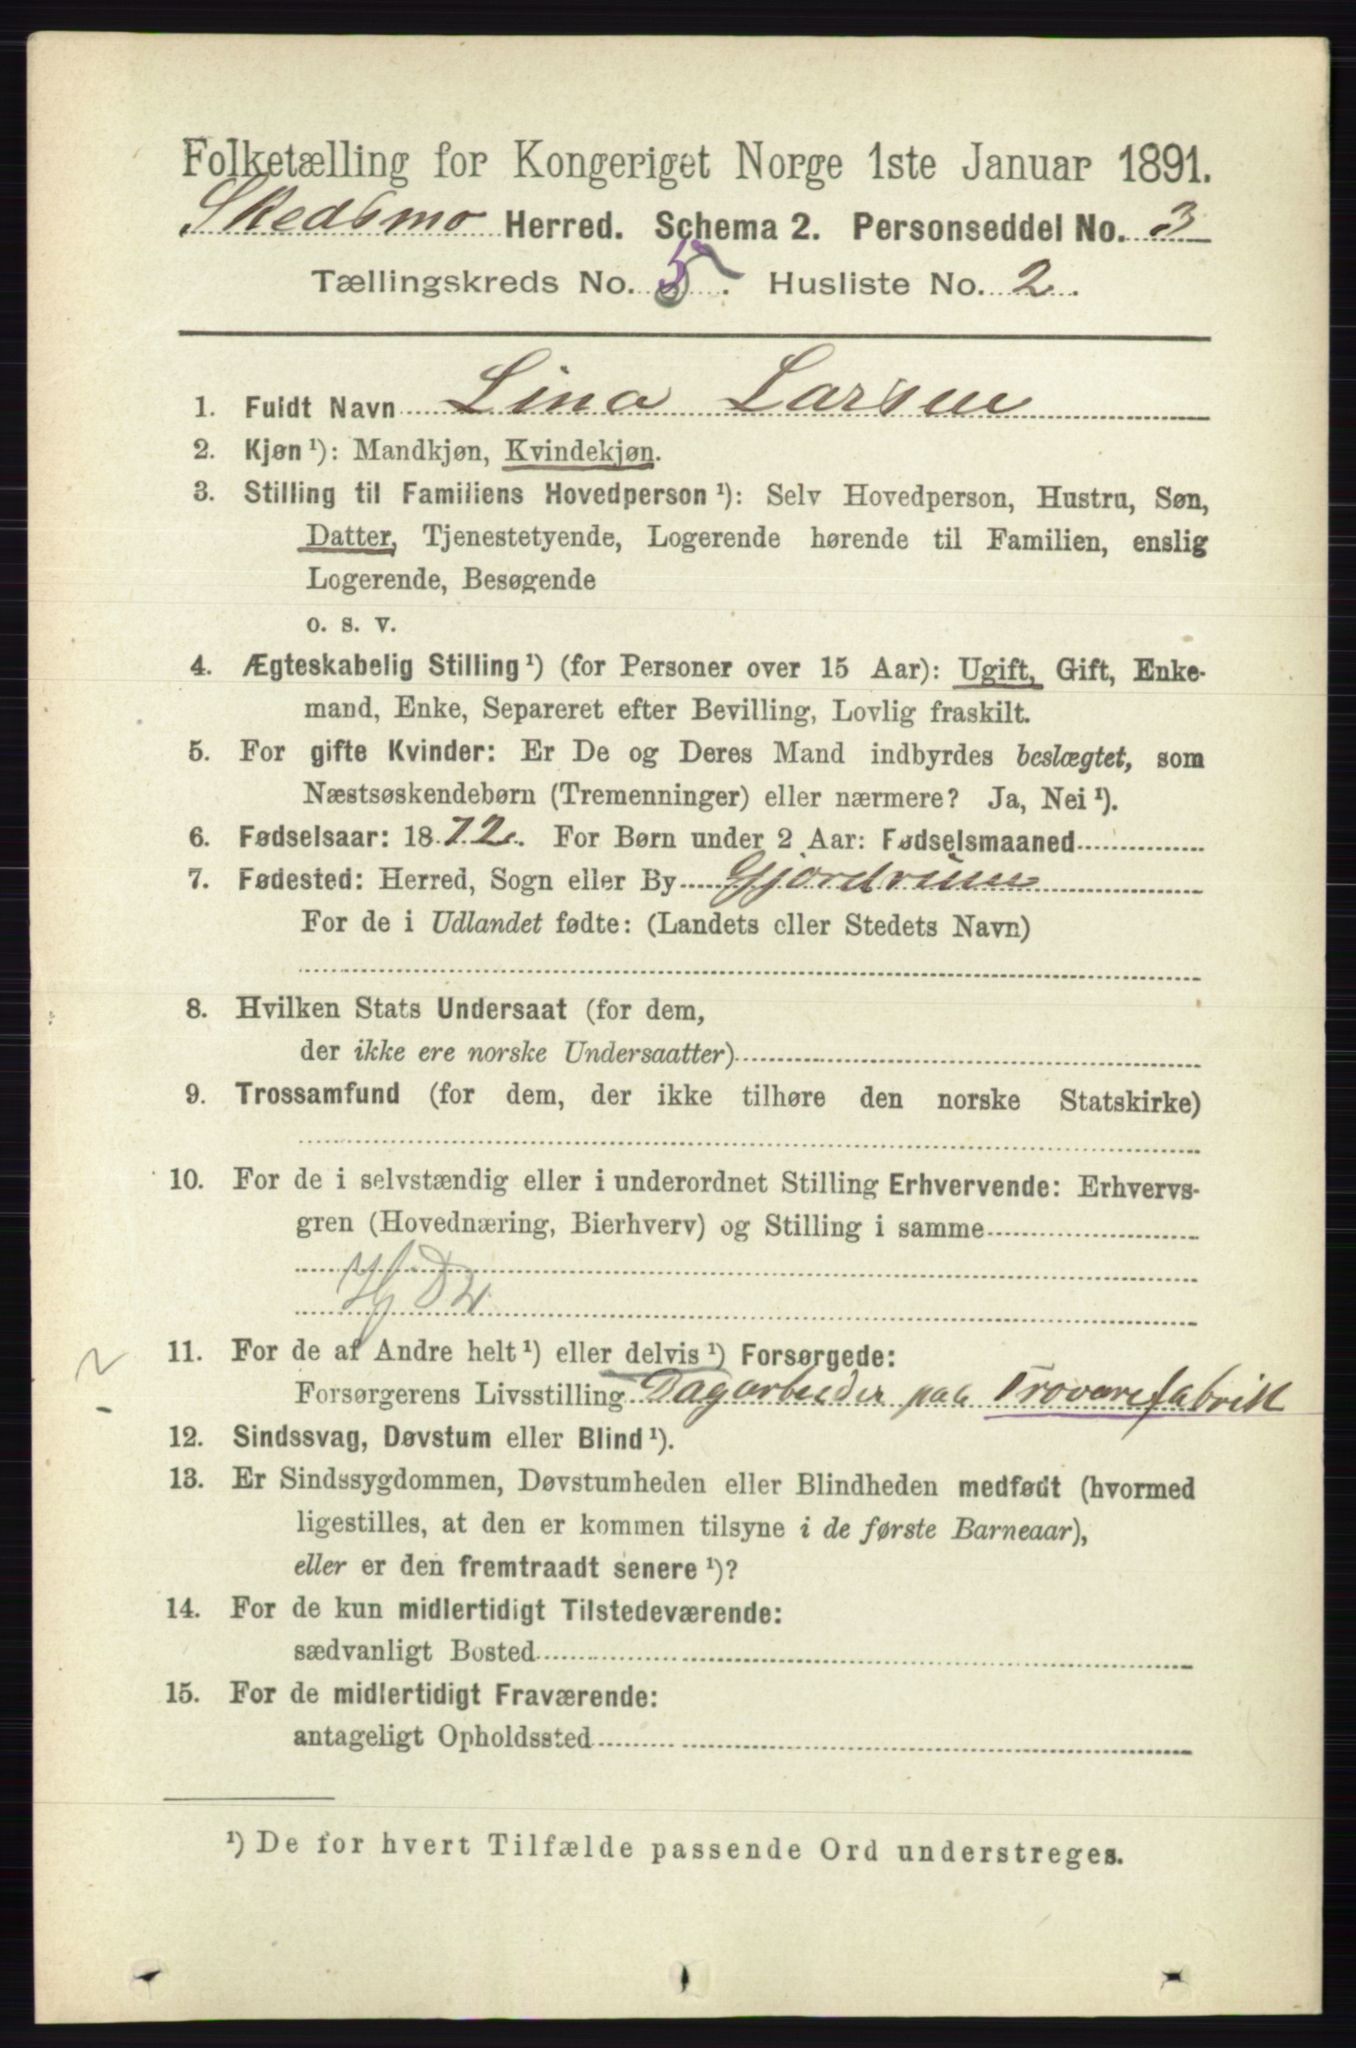 Folketælling for Kongeriget Norge 1ste Januar 1891.
Skedsmo Herred. Schema 2. Personseddel No. 3
Tællingskreds No. 5. Husliste No. 2.
1. Fuldt Navn Lina Larsen
2. Kjøn ¹): Mandkjøn, Kvindekjøn.
3. Stilling til Familiens Hovedperson ¹): Selv Hovedperson, Hustru, Søn,
Datter, Tjenestetyende, Logerende hørende til Familien, enslig
Logerende, Besøgende
o. s. v.
4. Ægteskabelig Stilling ¹) (for Personer over 15 Aar): Ugift, Gift, Enke-
mand, Enke, Separeret efter Bevilling, Lovlig fraskilt.
5. For gifte Kvinder: Er De og Deres Mand indbyrdes beslægtet, som
Næstsøskendebørn (Tremenninger) eller nærmere? Ja, Nei ¹).
6. Fødselsaar: 1872. For Børn under 2 Aar: Fødselsmaaned
7. Fødested: Herred, Sogn eller By Gjordrum
For de i Udlandet fødte: (Landets eller Stedets Navn)
8. Hvilken Stats Undersaat (for dem,
der ikke ere norske Undersaatter)
9. Trossamfund (for dem, der ikke tilhøre den norske Statskirke)
10. For de i selvstændig eller i underordnet Stilling Erhvervende: Erhvervs-
gren (Hovednæring, Bierhverv) og Stilling i samme
11. For de af Andre helt ¹) eller delvis ¹) Forsørgede:
Forsørgerens Livsstilling Dagarbeider paa Trovarefabrik
12. Sindssvag, Døvstum eller Blind ¹).
13. Er Sindssygdommen, Døvstumheden eller Blindheden medfødt (hvormed
ligestilles, at den er kommen tilsyne i de første Barneaar),
eller er den fremtraadt senere ¹)?
14. For de kun midlertidigt Tilstedeværende:
sædvanligt Bosted
15. For de midlertidigt Fraværende:
antageligt Opholdssted
¹) De for hvert Tilfælde passende Ord understreges.